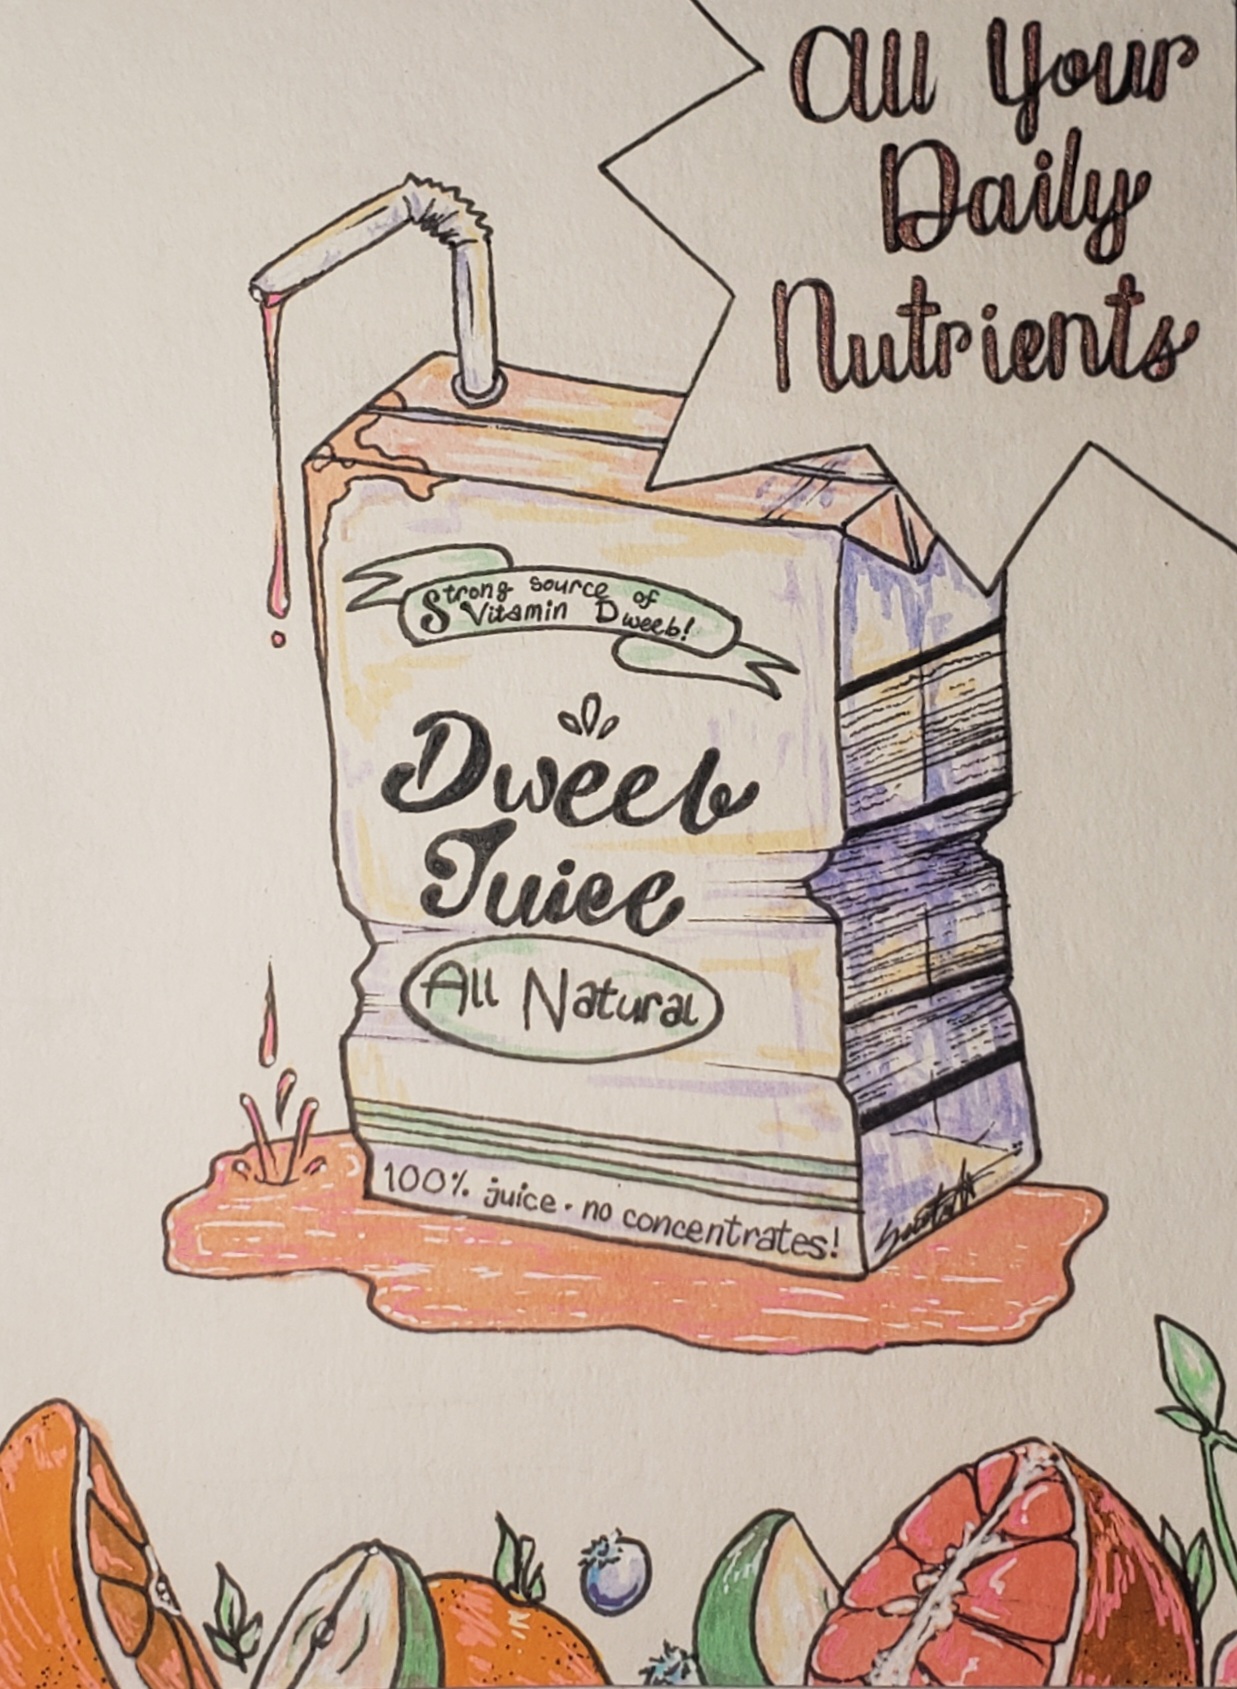 All Your
Daily
Nutrients
Strong source of
Vitamin Dweeb!
Dweeb
Juice
All Natural
100% juice · no concentrates!